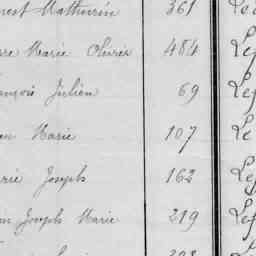 nest Mathurin 361 Le
rre Marie Olivier 484 Lef
ançois Julien 69 Lef
en Marie 107 Le
rie Joseph 162 Lef
in Joseph Marie 219 Lef